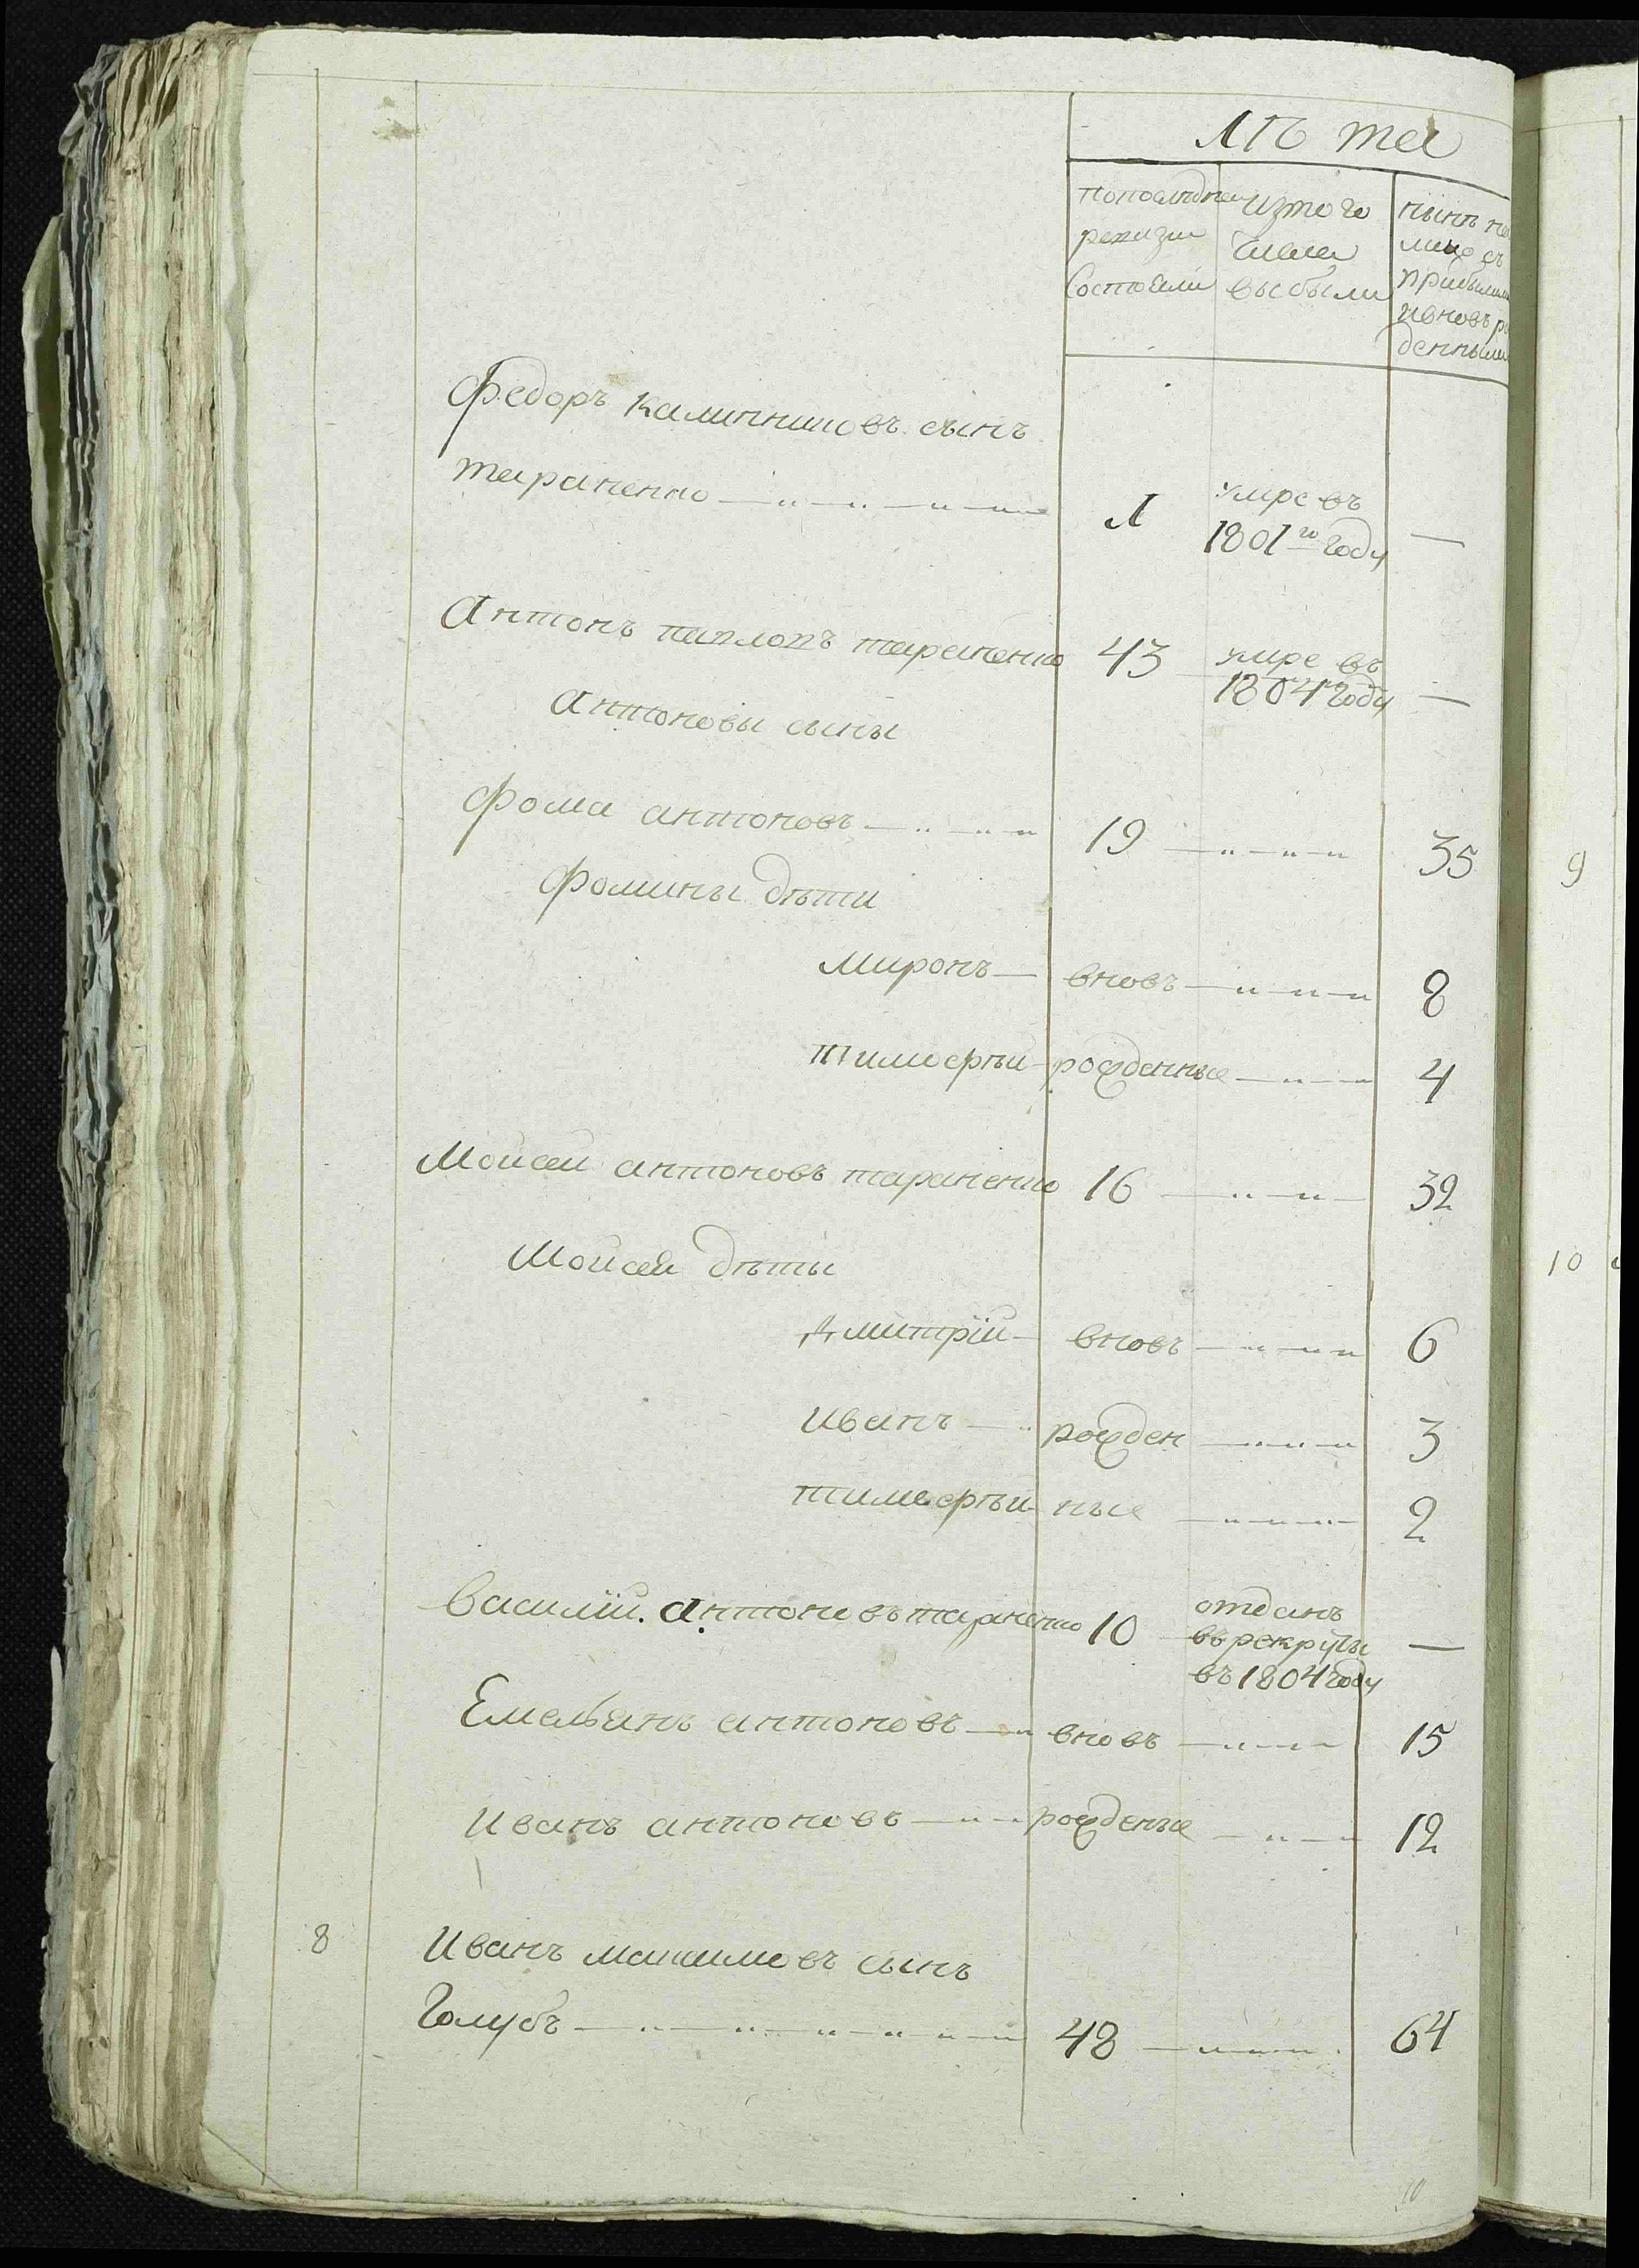 Лѣта
попослѣдней
ревизіи
Состояли
изтого
числа
выбыли
нынѣ на
лицо съ
прибылыми
ивновь ро
денными
Федоръ калинниковъ сынъ
тараненко
умре въ
1801го году
—
Антонъ павловъ тараненко 43 умре въ
1804 году —
Антоновы сыны
Фома антоновъ 19 35
9
Фомины дѣти
Миронъ вновь 8
тимофѣй рожденные 4
Моисей антоновъ тараненко 16 32
Моисея дѣты
10
Дмитрій вновь 6
иванъ рожден 3
тимофѣй ные 2
Василій Антоновъ тараненко 10 отданъ
въ рекруты —
въ 1804 году
Емельянъ антоновъ вновь 15
иванъ антоновъ рожденые 12
8 Иванъ максимовъ сынъ
Голубъ 48 64
10